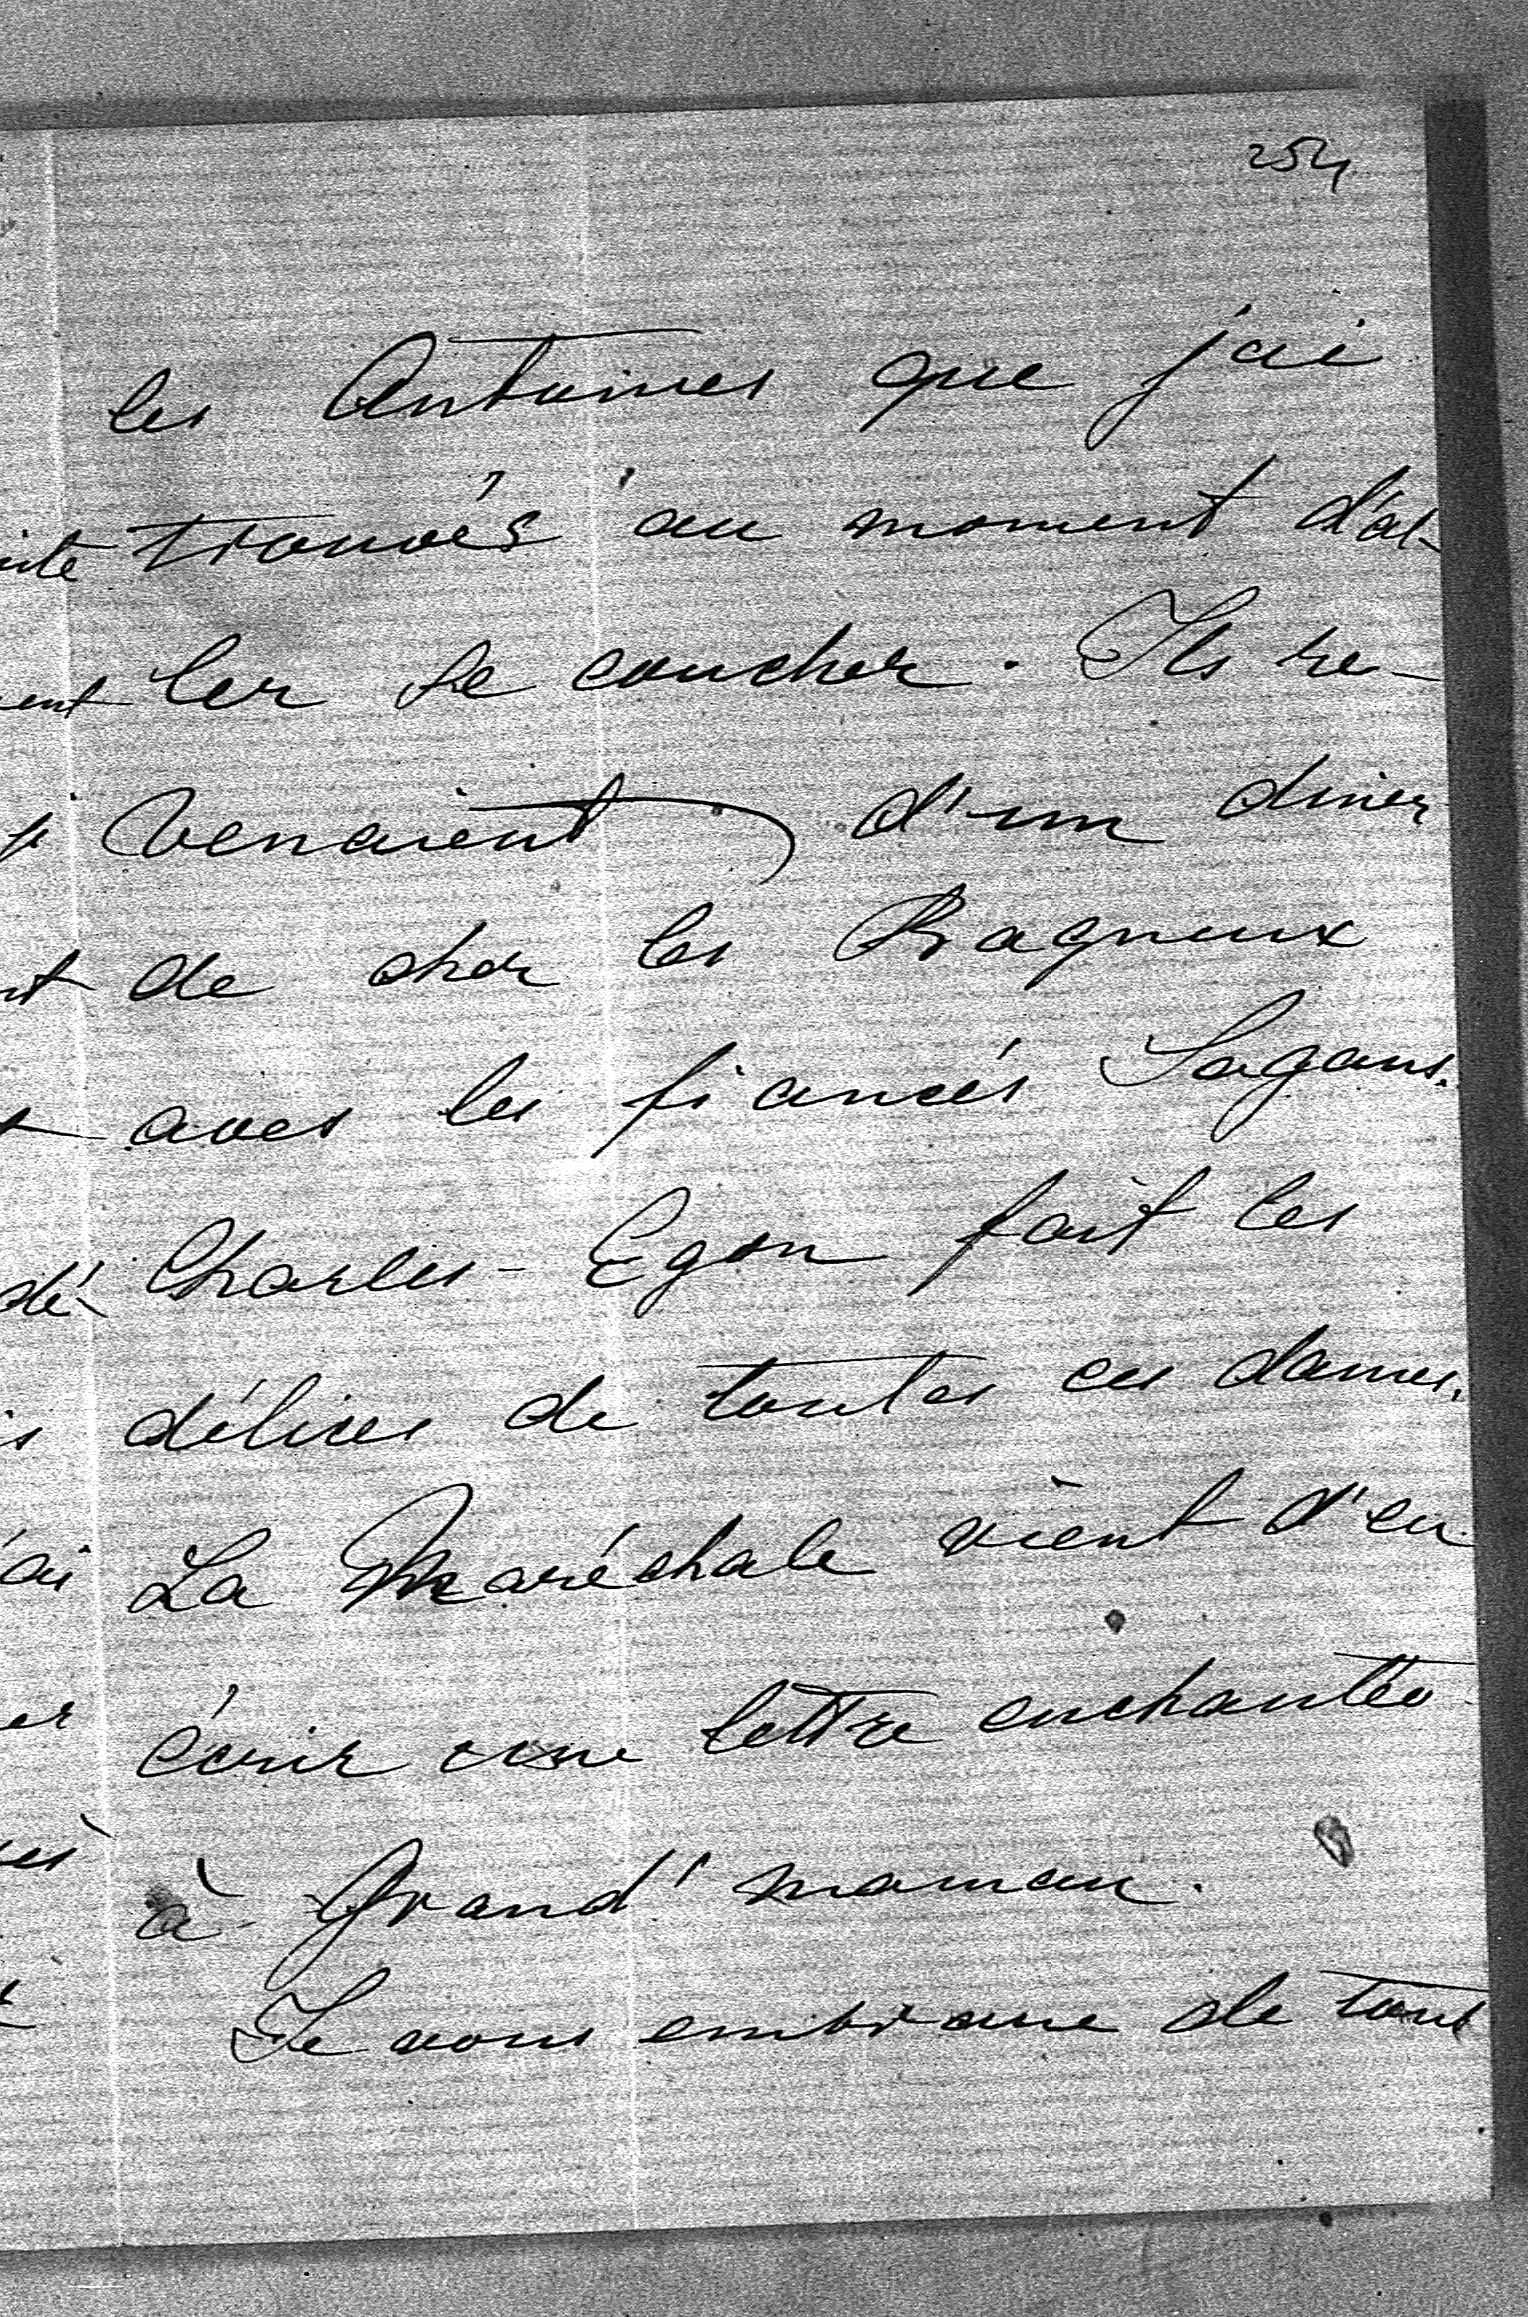 254
les Antoines que j'ai
trouvés au moment d'al-
ler se coucher. Ils re-
venaient d'un diner
de chez les Bagneux
avec les fiancés Sagans.
Charles-Egon fait les
délices de toutes ces dames.
La Maréchale vient d'en
écrir une lettre enchantée
à Grand'maman.
Je vous embrasse de tout